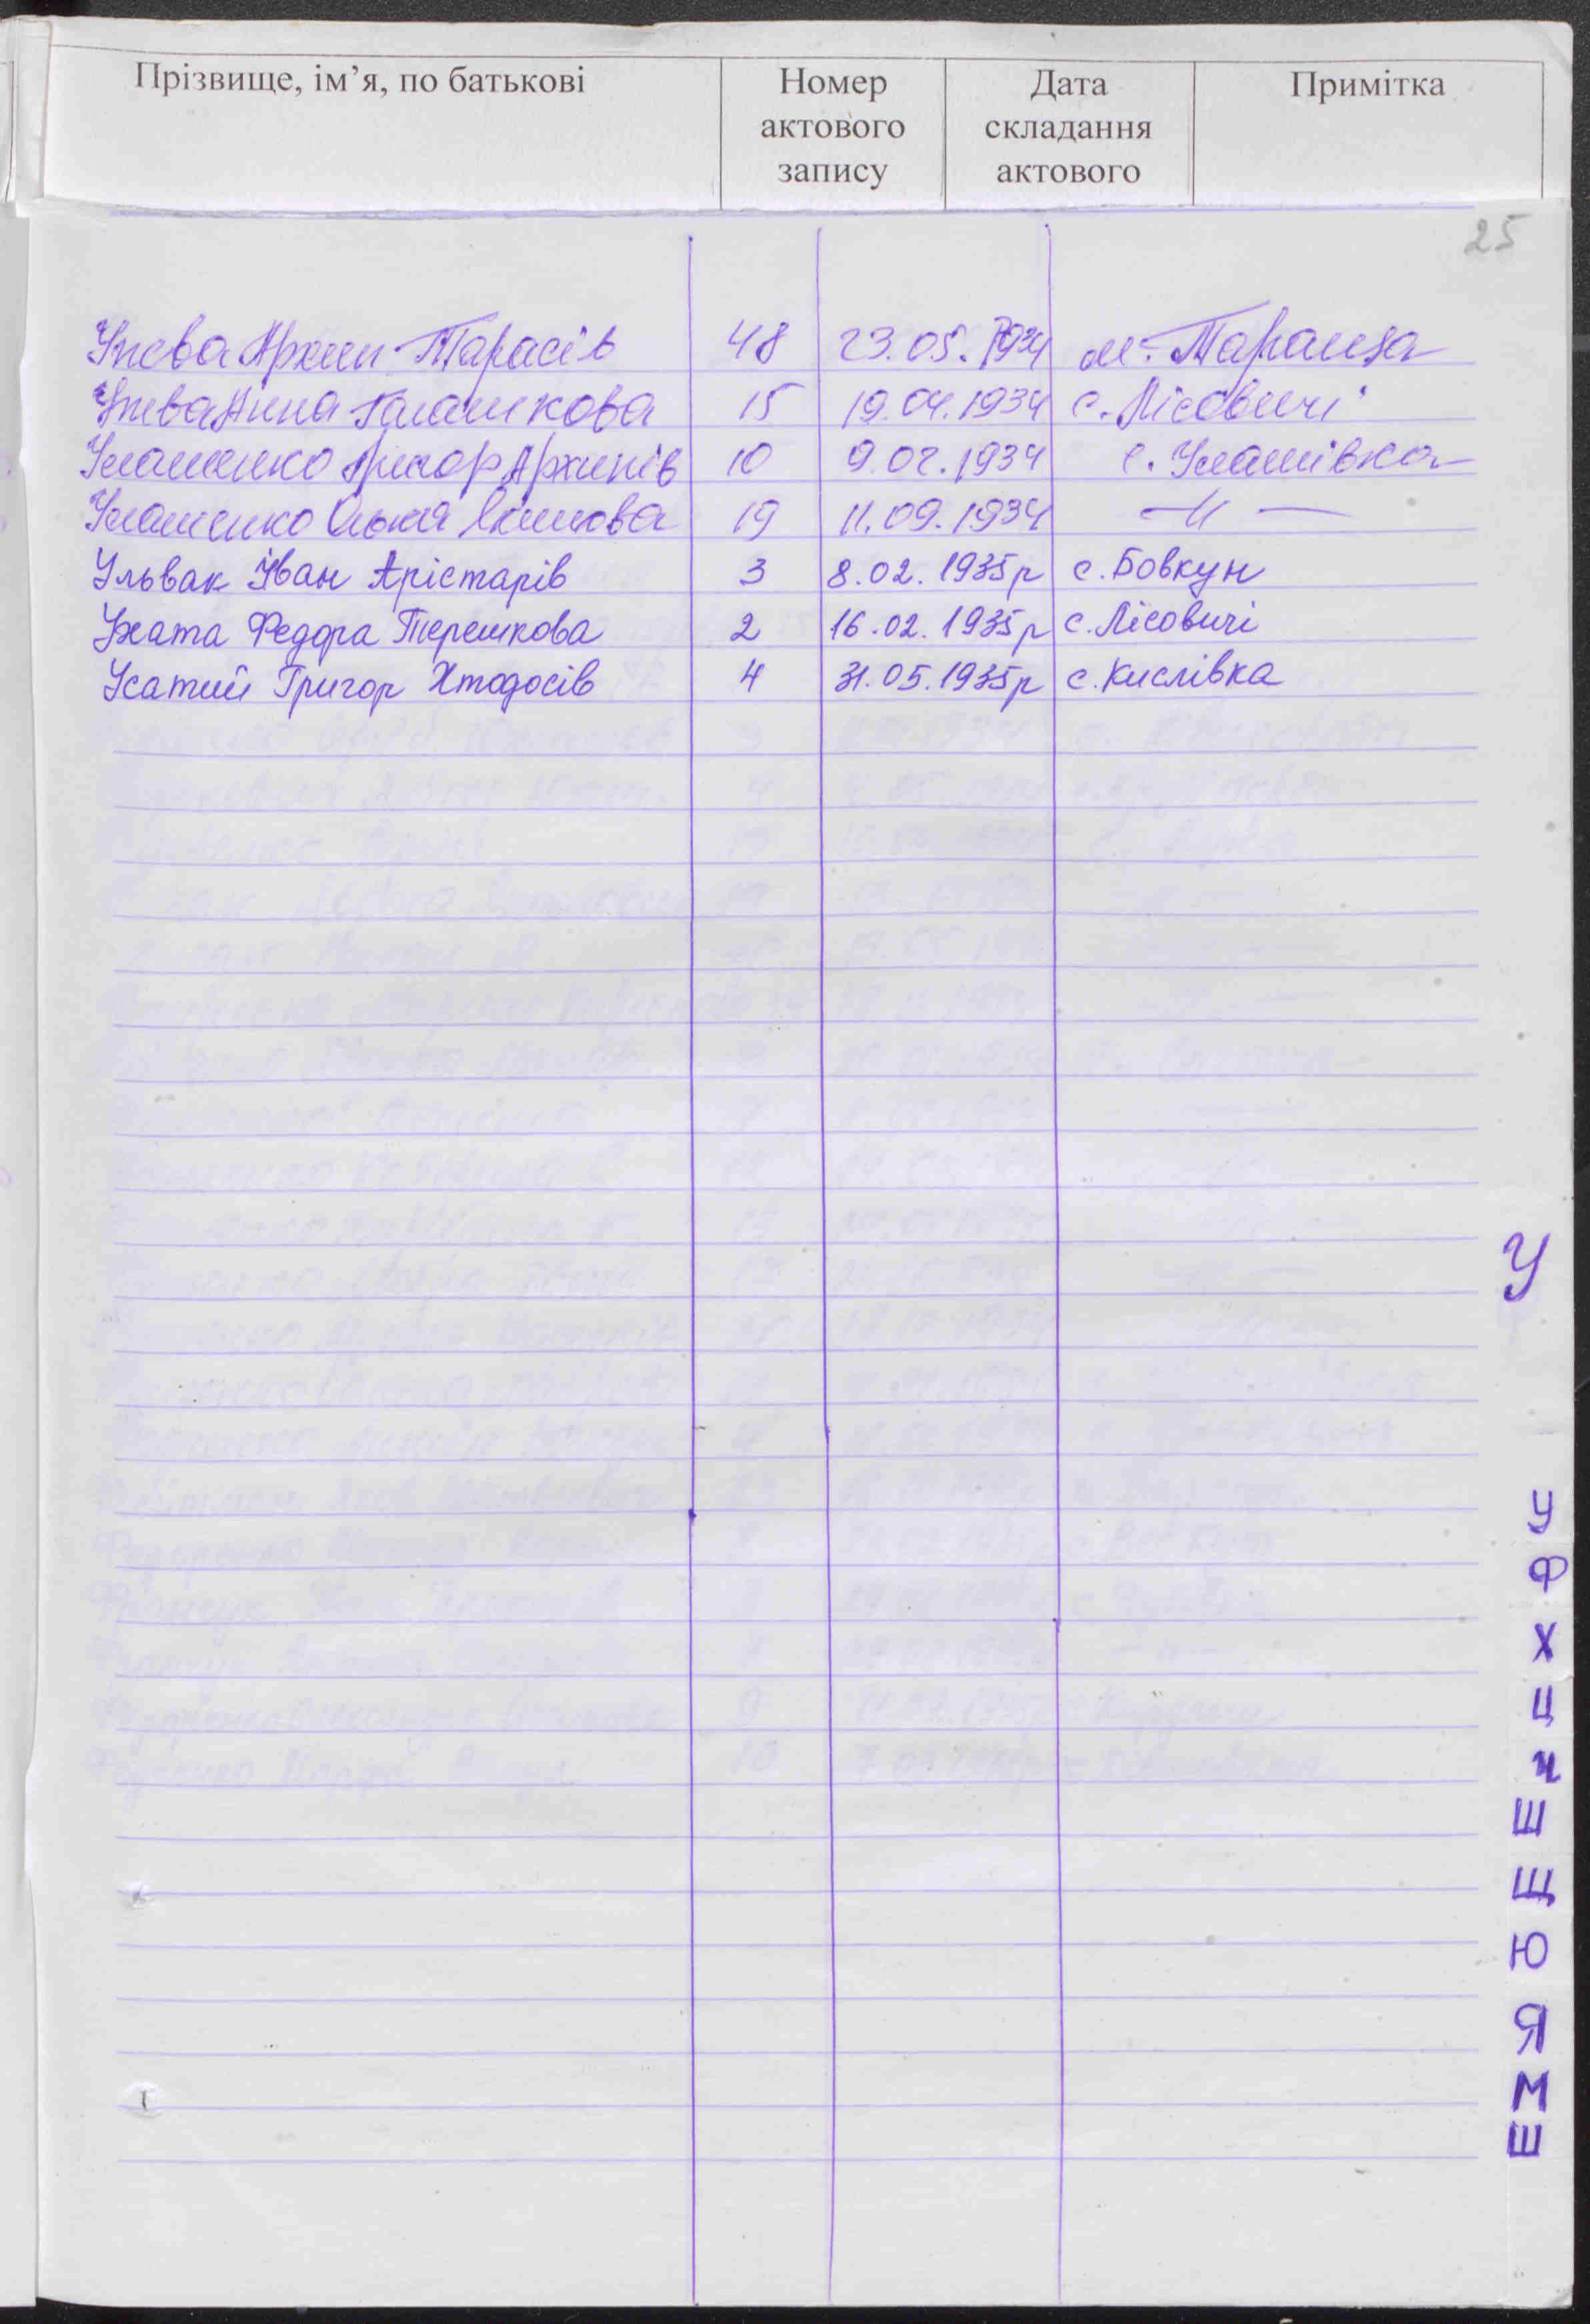 Прізвище, ім’я, по батькові
Номер актового запису
Дата складання актового
Примітка
25
Архип Тарасів 48 23.05.1934 м. Тараща
15 19.04.1934 с. Лісовичі
Улашенко Григор Архипів 10 9.02.1934 с. Улашівка
Улашенко 19 11.09.1934 —"—
Ульвак Іван Арістарів 3 8.02.1935р с. Бовкун
Ухата Федора Терешкова 2 16.02.1935р с. Лісовичі
Усатий Григор Хтодосів 4 31.05.1935р с. Кислівка
У
У
Ф
Х
Ц
Ч
Ш
Щ
Ю
Я
М
Ш